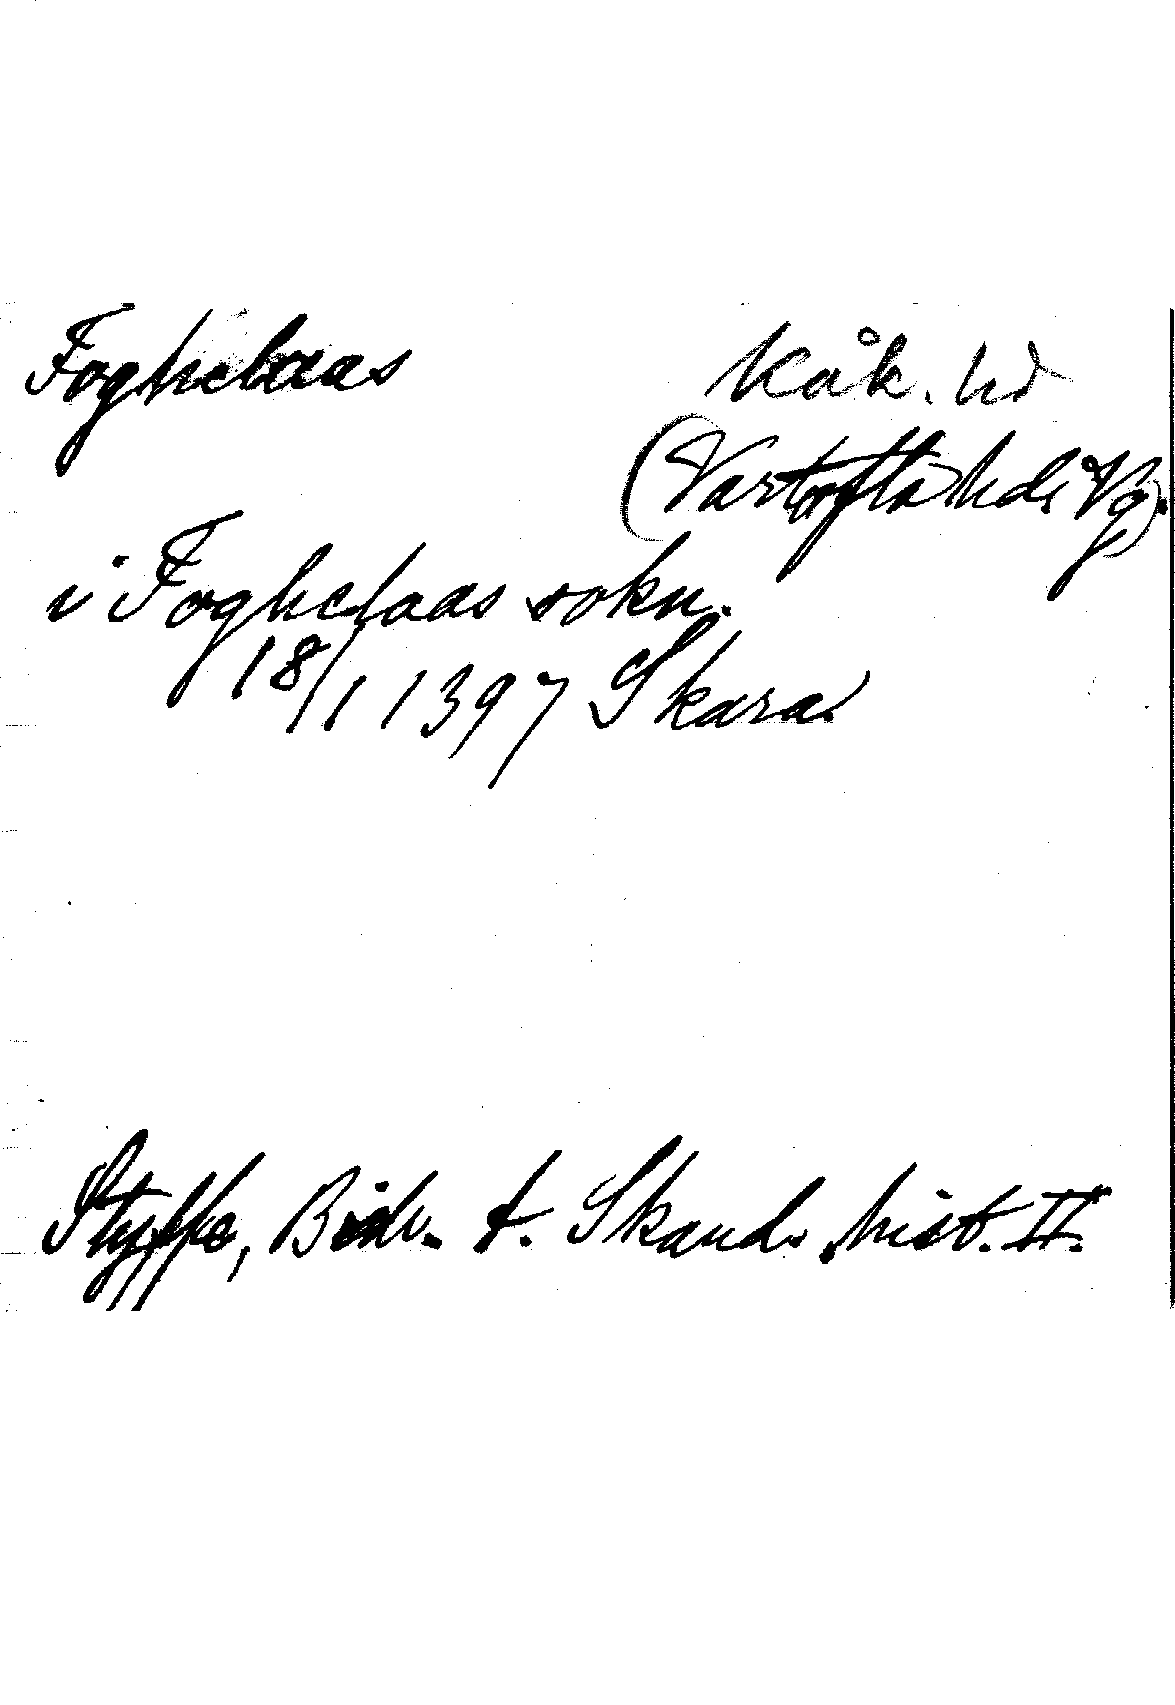 Foghelaas
Kåk. hd
(Vartofta hd. Vg).
i Foghelaas sokn.
18/1 1397 Skara
Styffe, Bidr. t. Skand. hist. II.